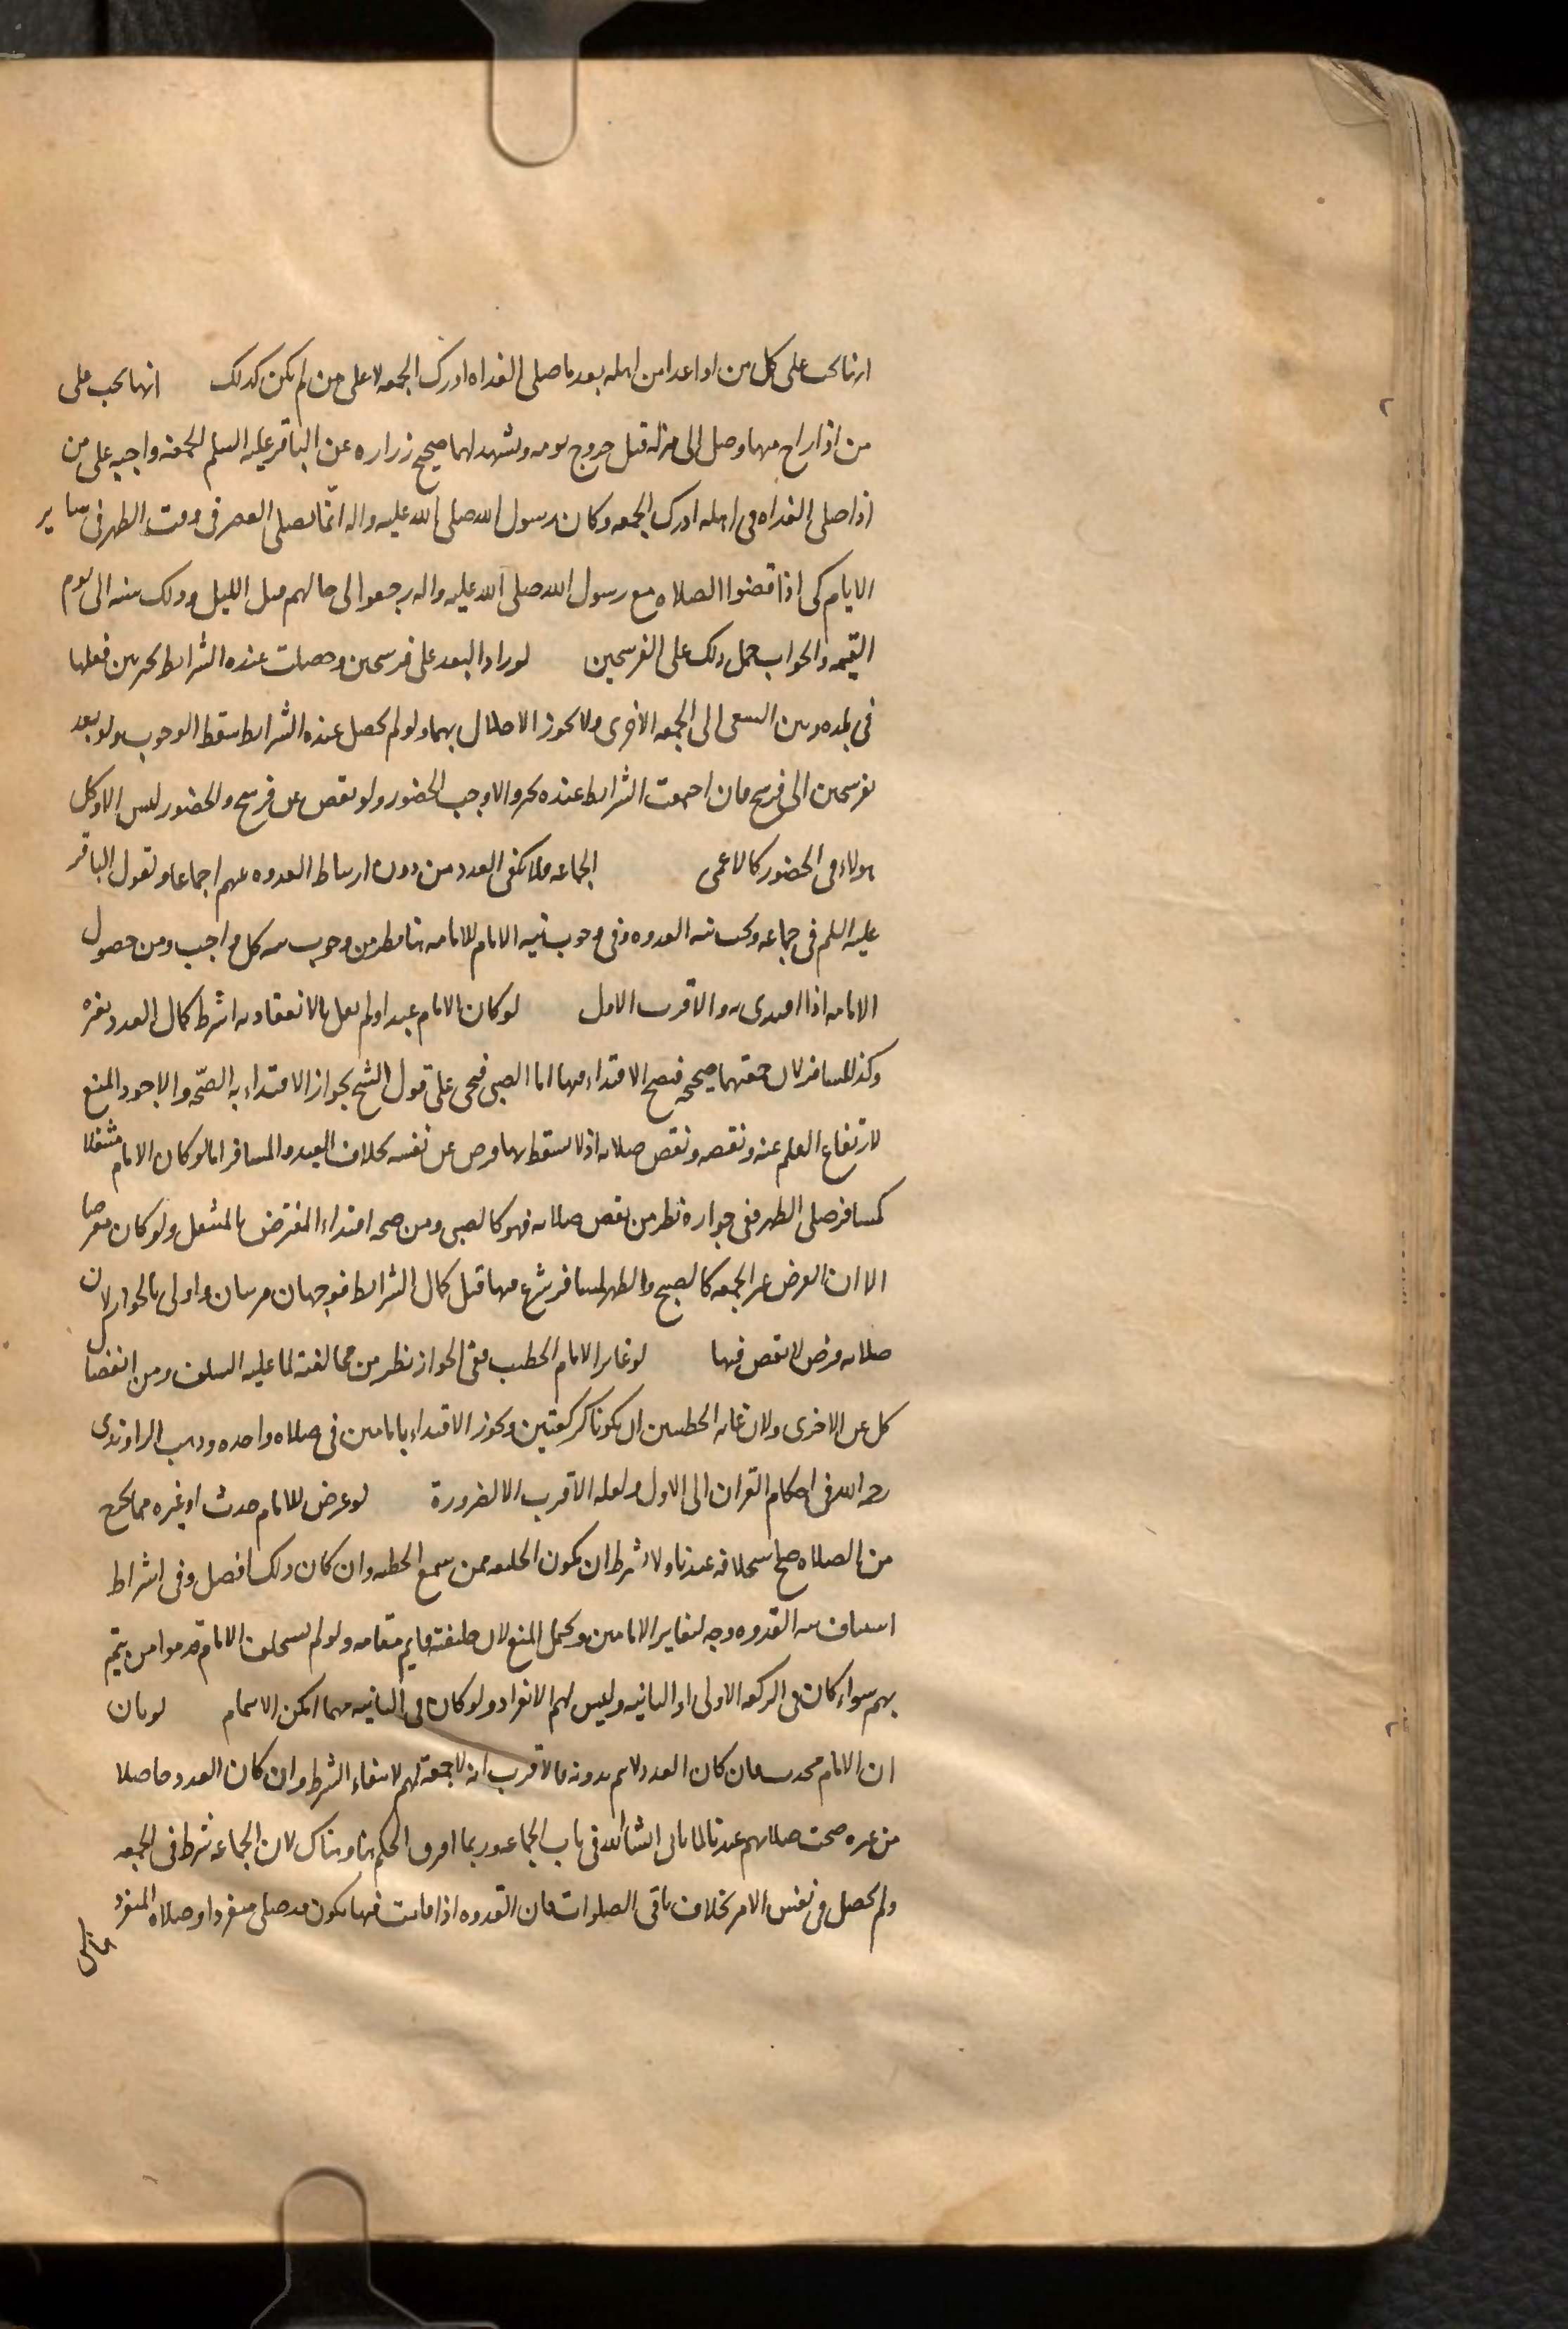 انها تجب على كل من اذا غدا من اهله بعد ما صلى الغداه ادرك الجمعه لا على من لم يكن كذلك انها تجب على
من اذا راح منها وصل الى منزله قبل خروج يومه ويشهد لهما صحيح زراره عن الباقر عليه السلم الجمعه واجبه على من
اذا صلى الغداه فى اهله ادرك الجمعه وكان رسول الله صلى الله عليه واله انما يصلى العصر فى وقت الظهر فى ساير
الايام كى اذا قضوا الصلاه مع رسول الله صلى الله عليه واله رجعوا الى رحالهم قبل الليل وذلك سنه الى يوم
القيمه والجواب حمل ذلك على الفرسخين لو زاد البعد على فرسخين وحصلت عنده الشرايط تخير بين فعلها
فى بلده وبين السعى الى الجمعه الاخرى ولا يجوز الاخلال بهما ولو لم يحصل عنده الشرايط سقط الوجوب ولو بعد
بفرسخين الى فرسخ فان اجتمعت الشرايط عنده تخير والا وجب الحضور ولو نقص عن فرسخ فالحضور ليس الا وكل
هولاء فى الحضور كالاعمى الجماعه فلا يكفى العدد من دون ارتباط القدوه بينهم اجماعا ولقول الباقر
عليه السلم فى جماعه وتجب نيه القدوه وفى وجوب نيه الامام للامامه هنا نظر من وجوب نيه كل واجب ومن حصول
الامامه اذا اقتدى به والاقرب الاول لو كان الامام عبدا ولم نقل بالانعقاد به اشترط كمال العدد بغيره
وكذا المسافر لان جمعتهما صحيحه فيصح الاقتداء فيها اما الصبى فيجى على قول الشيخ بجواز الاقتداء به الصحه والاجود المنع
لارتفاع القلم عنه ونقصه ونقص صلاته اذ لا يسقط بها فرض عن نفسه بخلاف العبد والمسافر اما لو كان الامام متنفلا
كمسافر صلى الظهر ففى جوازه نظر من نقص صلاته فهو كالصبى ومن صحه اقتداء المفترض بالمتنفل ولو كان مفترضا
الا ان الفرض غير الجمعه كالصبح والظهر لمسافر شرع فيها قبل كمال الشرايط فوجهان مرتبان واولى بالجواز لان
صلاته فرض لا نقص فيها لو غاير الامام الخطيب ففى الجواز نظر من مخالفته لما عليه السلف ومن انفصال
كل عن الاخرى ولان غايه الخطبتين ان يكونا كركعتين ويجوز الاقتداء بامامين فى صلاه واحده وذهب الراوندى
رحمه الله فى احكام القران الى الاول ولعله الاقرب الا لضرورة لو عرض للامام حدث او غيره مما يخرج
من الصلاه صح استخلافه عندنا ولا يشترط ان يكون الخليفه ممن سمع الخطبه وان كان ذلك افضل وفى اشتراط
استيناف نيه القدوه وجه لتغاير الامامين ويحتمل المنع لان خليفته قايم مقامه ولو لم يستخلف الامام قدموا من يتم
بهم سواء كان فى الركعه الاولى او الثانيه وليس لهم الانفراد ولو كان فى الثانيه مهما امكن الايتمام لو بان
ان الامام محدث فان كان العدد لا يتم بدونه فالاقرب انه لا جمعة لهم لانتفاء الشرط وان كان العدد حاصلا
من غيره صحت صلاتهم عندنا لما ياتى انشا الله فى باب الجماعه وربما افترق الحكم هنا وهناك لان الجماعه شرط فى الجمعه
ولم يحصل فى نفس الامر بخلاف باقى الصلوات فان القدوه اذا فاتت فيها يكون قد صلى منفردا وصلاه المنفرد
هناك